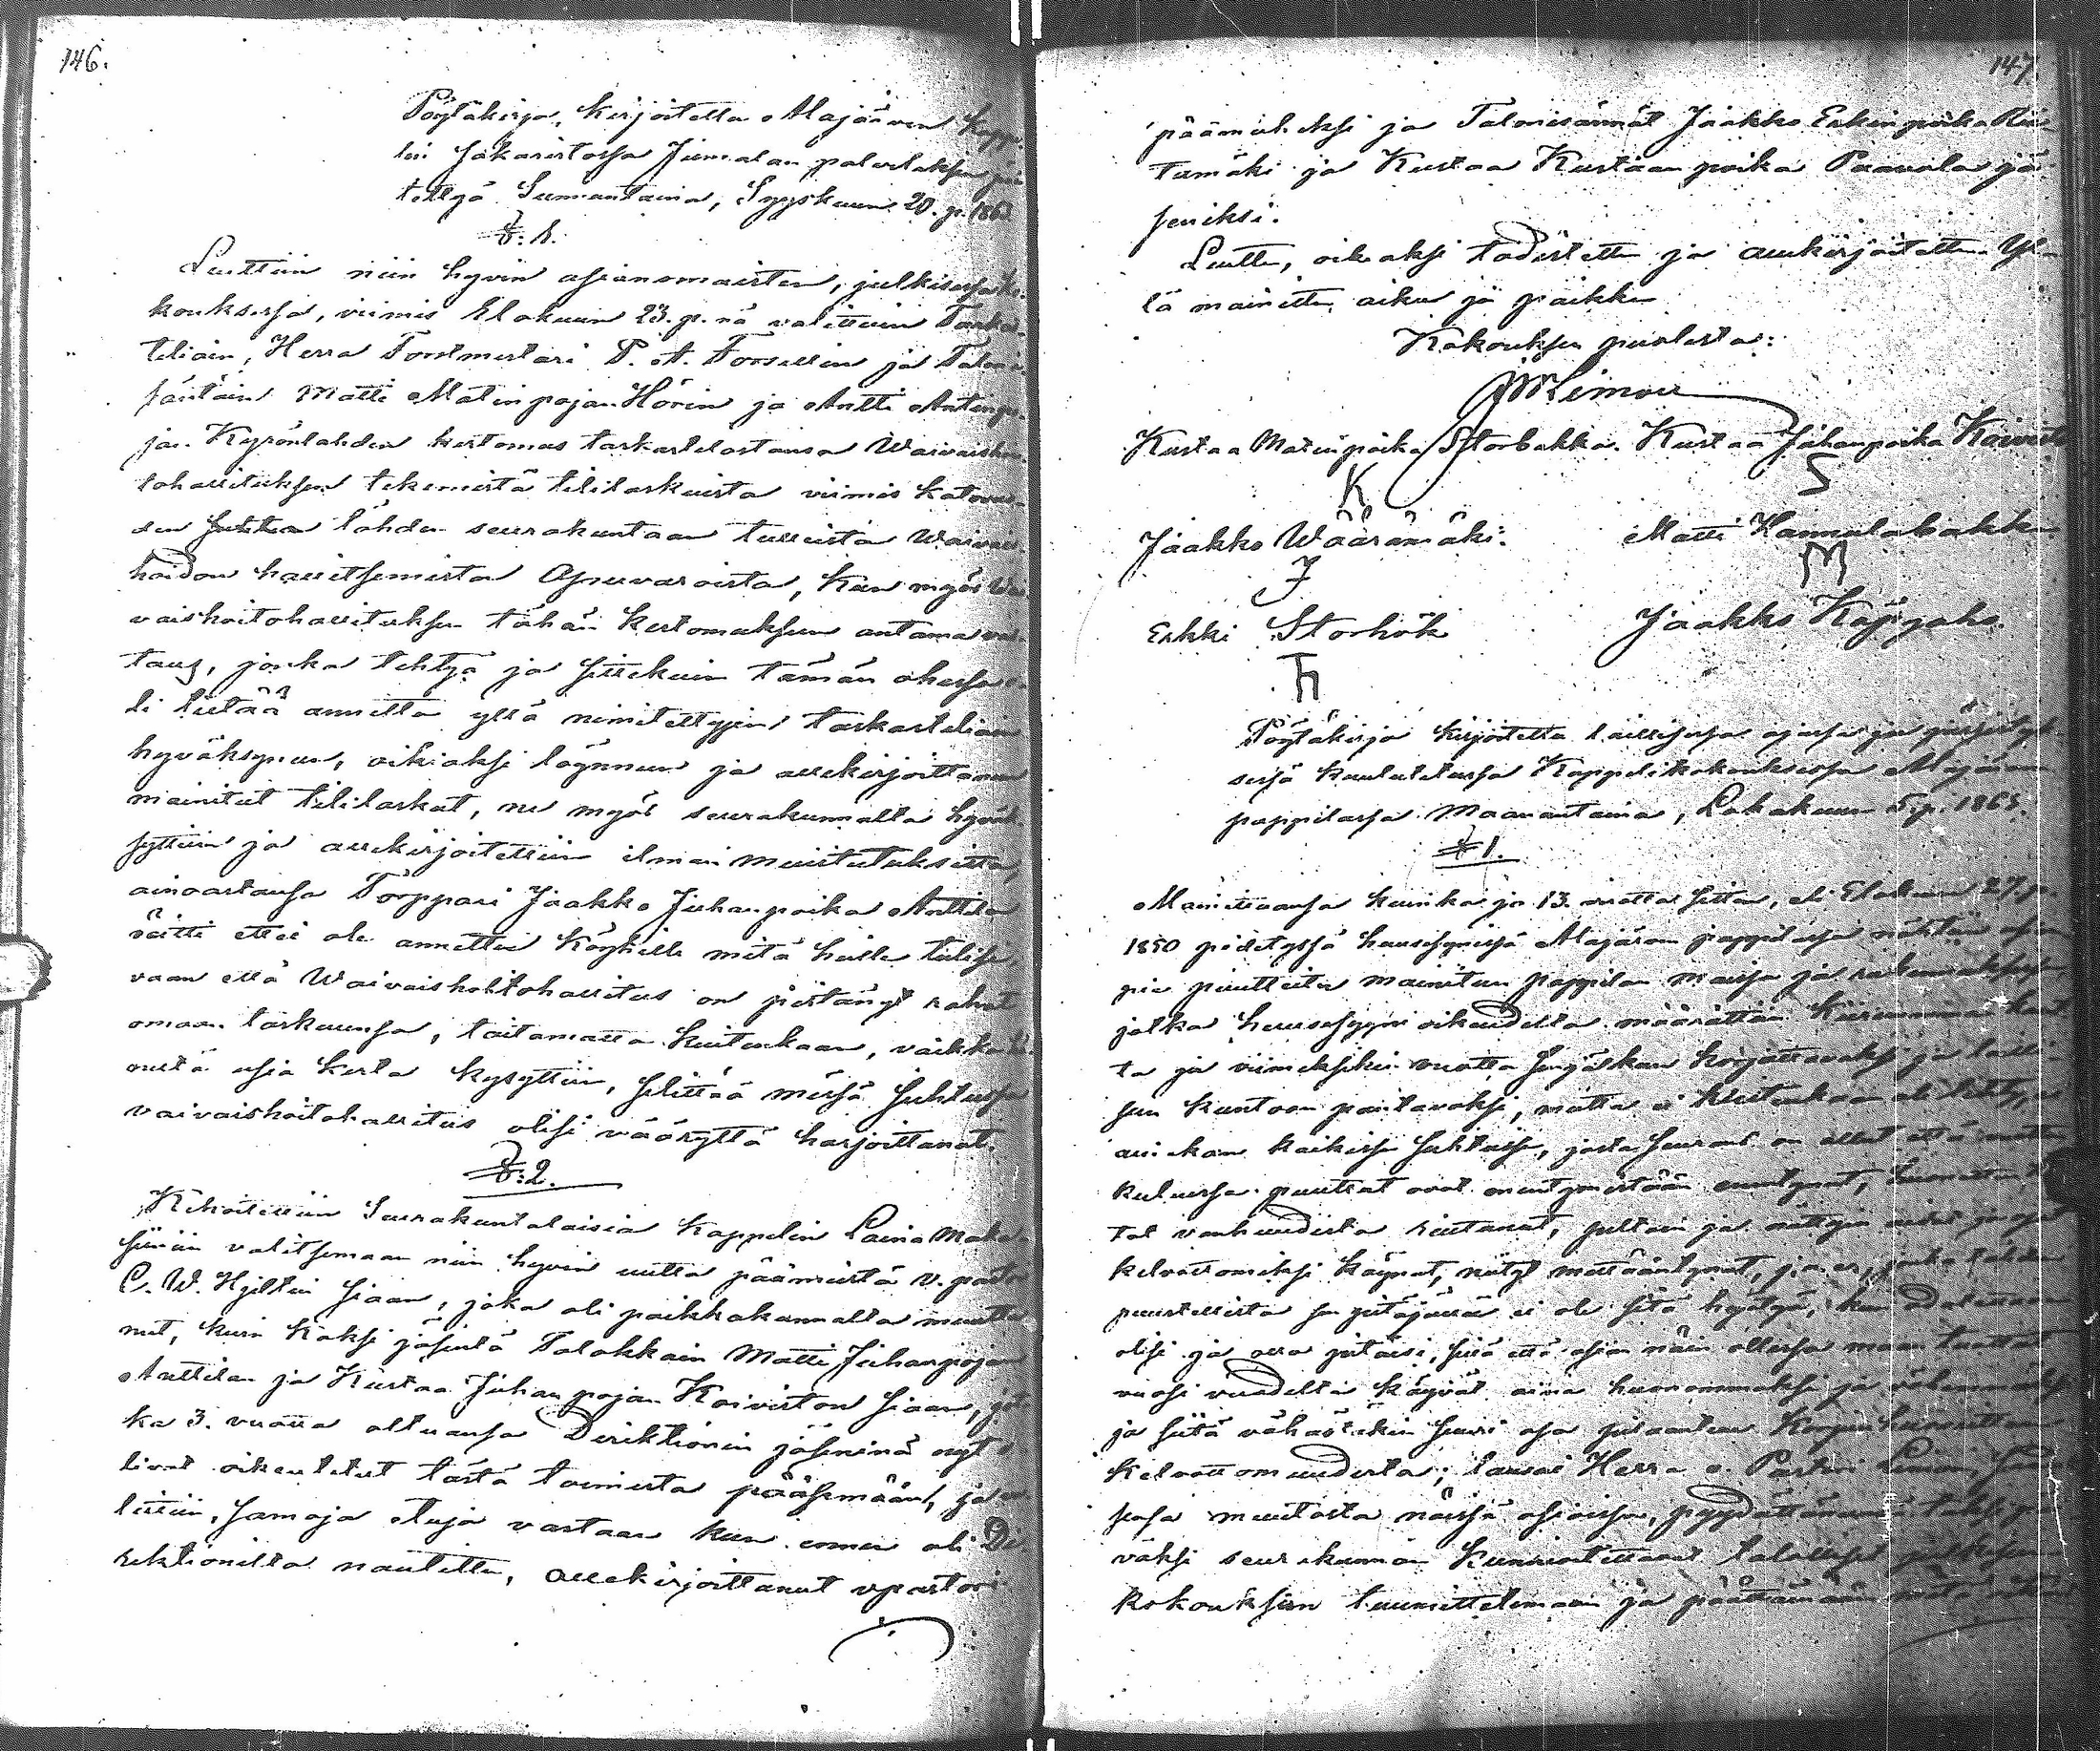 146.
Pöytäkirja, kirjoitettu Alajärven Kappe-
lin Sakaristossa Jumalan palveluksen pää-
tettyä Sunnuntaina, Syyskuun 20. p. 1863
§: 1.
Luettiin niin hyvin asianomaisten, julkisessa ko-
kouksessa, viimis Elokuun 23. p. nä valittuin Tarkas-
teliain, Herra Forstmestari P. A. Forsellin ja Talon-
isäntäin Matti Matinpojan Hörin ja Antti Antinpo-
jan Kyrönlahden kertomus tarkastelostansa Waivaishoi-
tohallituksen tekemistä tililaskuista viimis katovuo-
den suhteen tähden seurakuntaan tulleista Waivais-
hoidon hallitsemista Apuvaroista, kuin myös Wai-
vaishoitohallituksen tähän kertomukseen antama vas-
taus, jonka tehtyä ja sittekuin tämän ohessa o-
li tietää annettu yllä nimitettyjen tarkasteliain
hyväksyneen, oikiaksi löynneen ja allekirjoittaneen
mainitut tililaskut, ne myös seurakunnalta hyväk-
syttiin ja allekirjoitettiin ilman muistutuksitta,
ainoastansa Torppari Jaakko Juhanpoika Anttila
väitti ettei ole annettu Köyhille mitä heille tulisi,
vaan että Waivaishoitohallitus on pistänyt rahat
omaan taskuunsa, taitamatta kuitenkaan, vaikka
useta asia kerta kysyttiin, selittää missä suhteessa
vaivaishoitohallitus olisi vääryyttä harjoittanut.
§: 2.
Kehoitettiin Seurakuntalaisia Kappelin Laina Maka-
siiniin valitsemaan niin hyvin uutta päämiestä v. pastor
C. W. Hjeltin siaan, joka oli paikkakunnalta muutta-
nut, kuin kaksi jäsentä Talokkain Matti Juhanpojan
Anttilan ja Kustaa Juhanpojan Koiviston siaan, jot-
ka 3. vuotta oltuansa Direktionin jäseninä nyt o-
livat oikeutetut tästä toimesta pääsemään, ja va-
littiin, samoja etuja vastaan kun ennen oli Di-
rektionilta nautittu, allekirjoittanut vpastori
147
päämieheksi ja Talonisännät Jaakko Erkinpoika Rii-
tumäki ja Kustaa Kustaanpoika Paavola jä-
seniksi.
Luettu, oikeaksi todistettu ja allekirjoitettu Yl-
lä mainittu aika ja paikka
Kokouksen puolesta:
Limon
Kustaa Matinpoika Storbakka. Kustaa Juhanpoika Koivisto
K S
Jaakko Wäärämäki. Matti Kannulabakka
J M
Erkki Storhök Jaakko Käpyaho.
Pöytäkirja kirjoitettu laillisessa ajassa ja järjestyk-
sessä kuulutetussa Kappelikokouksessa Alajärven
pappilassa Maanantaina, Lokakuun 5. p. 1863.
§ 1.
Mainittaansa kuinka jo 13. vuotta sitten, eli Elokuun 27. p.
1850 pidetyssä huusesynissä Alajärven pappilassa nähtiin
puutteita mainitun pappilan maissa ja rakennuksissa
jotka huusesyyni oikeudelta määrättiin
ta ja viimeksikin vuotta senjälkeen korjattavaksi ja lailli-
seen kuntoon pantavaksi, mutta ei kuitenkaan ole tehty,
ainakan kaikissa suhteissa, josta seuraus on ollut että
kuluessa puutteet ovat enentymistään enentyneet, huoneet
tat vanhuudesta rietanat, pellot ja niityt
kelvottomiksi käynet, niityt metsääntynet,
puustellista sen pitäjällä ei ole sitä hyötyä, kun
olisi ja olla pitäisi, sillä että asian näin ollessa maan tuotteet
vuosi vuodelta käyvät aina huonommaksi ja vähemmäksi
ja siitä vähästäkin suuri osa
kelvottomuudesta; lausui Herra v. Pastori Limon,
seksa muutosta näissä asioissa, pyydättänensä
väksi seurakunnan kunnioitettavat talolliset
kokouksen tuumittelemaan ja päättämään